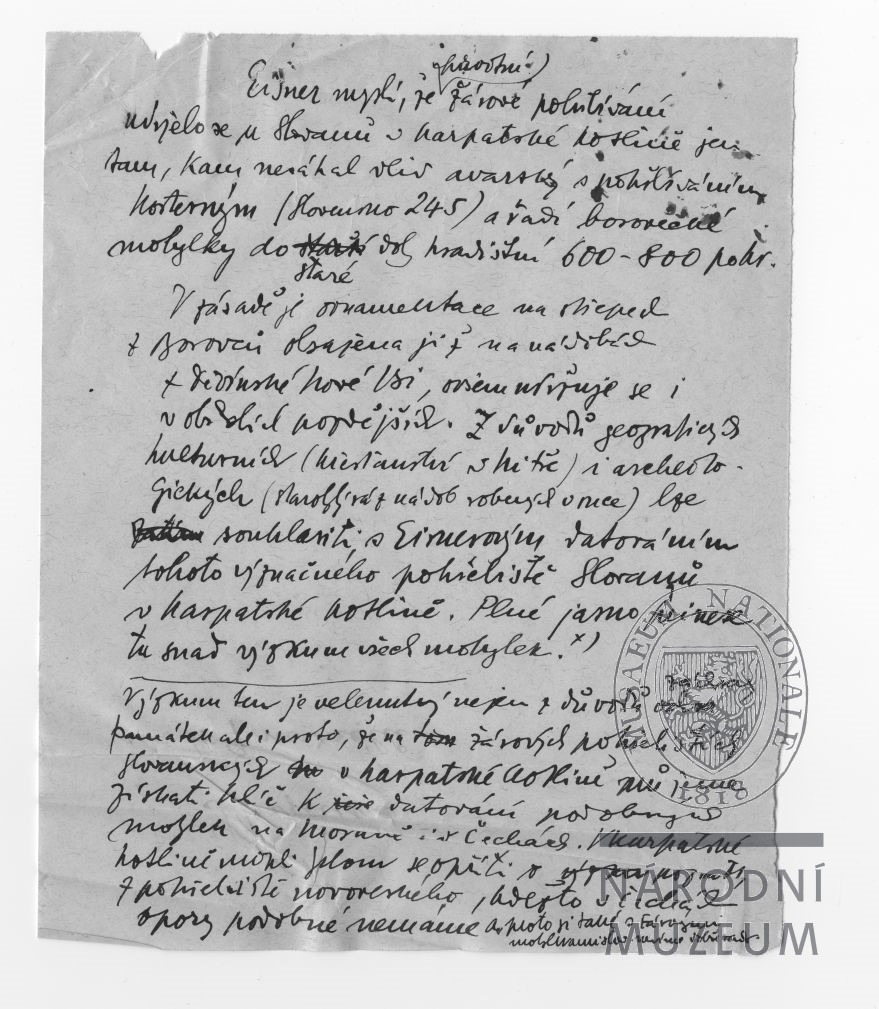 původní
Eisner myslí, že žárové pohřbívání
udrželo se u Slovanů v karpatské kotlině jen
tam, kam nesáhal vliv avarský s pohřbíváním
kosterným (Slovensko 245) a řadí borovečké
mohylky do doby hradištní 600-800 po Kr.
staré
V zásadě je ornamentace na střepech
z Borovců obsažena již na nádobách
z Děvínské Nové Vsi, ovšem udržuje se i
v obdobích pozdějších. Z důvodů geografických
kulturních (křesťanství v Nitře) i archeolo-
gických (starobylý ráz nádob robených v ruce) lze
souhlasiti s Eisnerovým datováním
tohoto význačného pohřebiště Slovanů
v karpatské kotlině. Plné jasno
tu snad výzkum všech mohylek. x)
Výzkum ten je velenutný nejen z důvodů
památek ale i proto, že na žárových pohřebištích
slovanských v karpatské kotlině můžeme
získati klíč k datování podobných
mohylek na Moravě i v Čechách. V karpatské
kotlině mohl jsem se opříti o
z pohřebiště novoveského, kdežto v Čechách
opory podobné nemáme a proto si také s žárovými
MUSAEUM NATIONALE
1818
NÁRODNÍ
MUZEUM